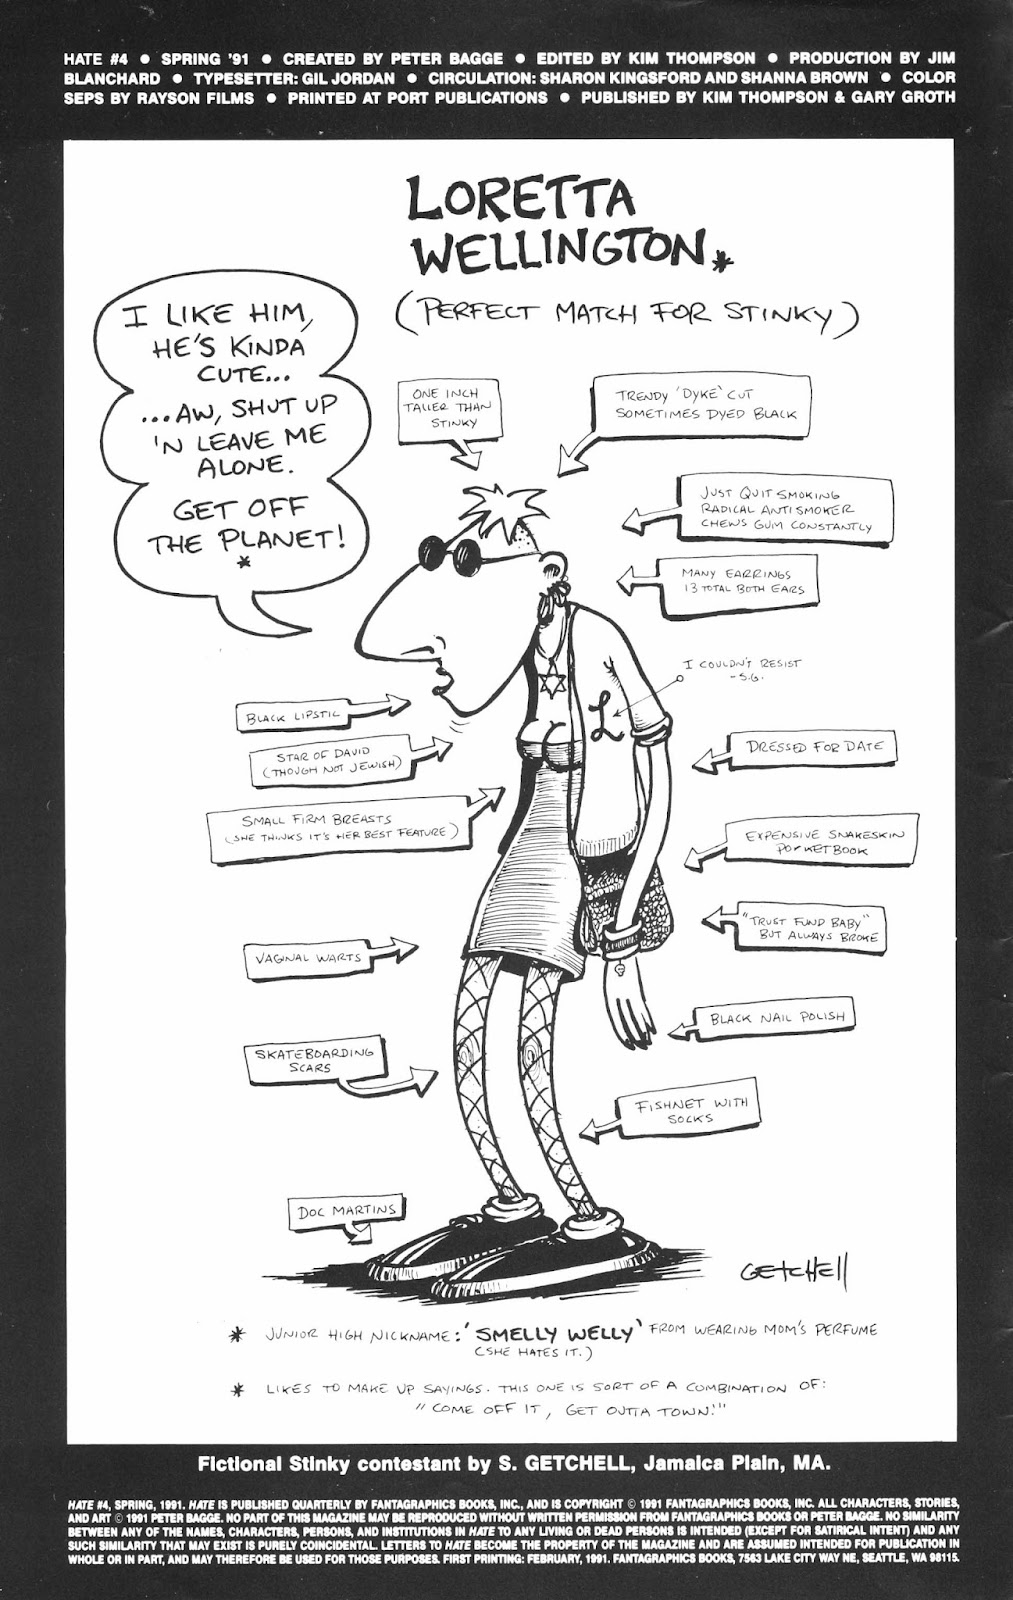 HATE #4 ● SPRING '91 ● CREATED BY PETER BAGGE ● EDITED BY KIM THOMPSON ● PRODUCTION BY JIM
BLANCHARD ● TYPESETTER: GIL JORDAN ● CIRCULATION: SHARON KINGSFORD AND SHANNA BROWN ● COLOR
SEPS BY RAYSON FILMS ● PRINTED AT PORT PUBLICATIONS ● PUBLISHED BY KIM THOMPSON & GARY GROTH
LORETTA
WELLINGTON*
(PERFECT MATCH FOR STINKY)
I LIKE HIM,
HE'S KINDA
CUTE...
...AW, SHUT UP
'N LEAVE ME
ALONE.
GET OFF
THE PLANET!
*
ONE INCH
TALLER THAN
STINKY
TRENDY 'DYKE' CUT
SOMETIMES DYED BLACK
JUST QUIT SMOKING
RADICAL ANTISMOKER
CHEWS GUM CONSTANTLY
MANY EARRINGS
13 TOTAL BOTH EARS
I COULDN'T RESIST
-S.G.
L
BLACK LIPSTIC
STAR OF DAVID
(THOUGH NOT JEWISH)
SMALL FIRM BREASTS
(SHE THINKS IT'S HER BEST FEATURE)
DRESSED FOR DATE
EXPENSIVE SNAKESKIN
POCKETBOOK
"TRUST FUND BABY"
BUT ALWAYS BROKE
VAGINAL WARTS
BLACK NAIL POLISH
SKATEBOARDING
SCARS
FISHNET WITH
SOCKS
DOC MARTINS
GETCHELL
* JUNIOR HIGH NICKNAME: 'SMELLY WELLY' FROM WEARING MOM'S PERFUME
(SHE HATES IT.)
* LIKES TO MAKE UP SAYINGS. THIS ONE IS SORT OF A COMBINATION OF:
"COME OFF IT, GET OUTTA TOWN!"
Fictional Stinky contestant by S. GETCHELL, Jamaica Plain, MA.
HATE #4, SPRING, 1991. HATE IS PUBLISHED QUARTERLY BY FANTAGRAPHICS BOOKS, INC., AND IS COPYRIGHT © 1991 FANTAGRAPHICS BOOKS, INC. ALL CHARACTERS, STORIES,
AND ART © 1991 PETER BAGGE. NO PART OF THIS MAGAZINE MAY BE REPRODUCED WITHOUT WRITTEN PERMISSION FROM FANTAGRAPHICS BOOKS OR PETER BAGGE. NO SIMILARITY
BETWEEN ANY OF THE NAMES, CHARACTERS, PERSONS, AND INSTITUTIONS IN HATE TO ANY LIVING OR DEAD PERSONS IS INTENDED (EXCEPT FOR SATIRICAL INTENT) AND ANY
SUCH SIMILARITY THAT MAY EXIST IS PURELY COINCIDENTAL. LETTERS TO HATE BECOME THE PROPERTY OF THE MAGAZINE AND ARE ASSUMED INTENDED FOR PUBLICATION IN
WHOLE OR IN PART, AND MAY THEREFORE BE USED FOR THOSE PURPOSES. FIRST PRINTING: FEBRUARY, 1991. FANTAGRAPHICS BOOKS, 7563 LAKE CITY WAY NE, SEATTLE, WA 98115.